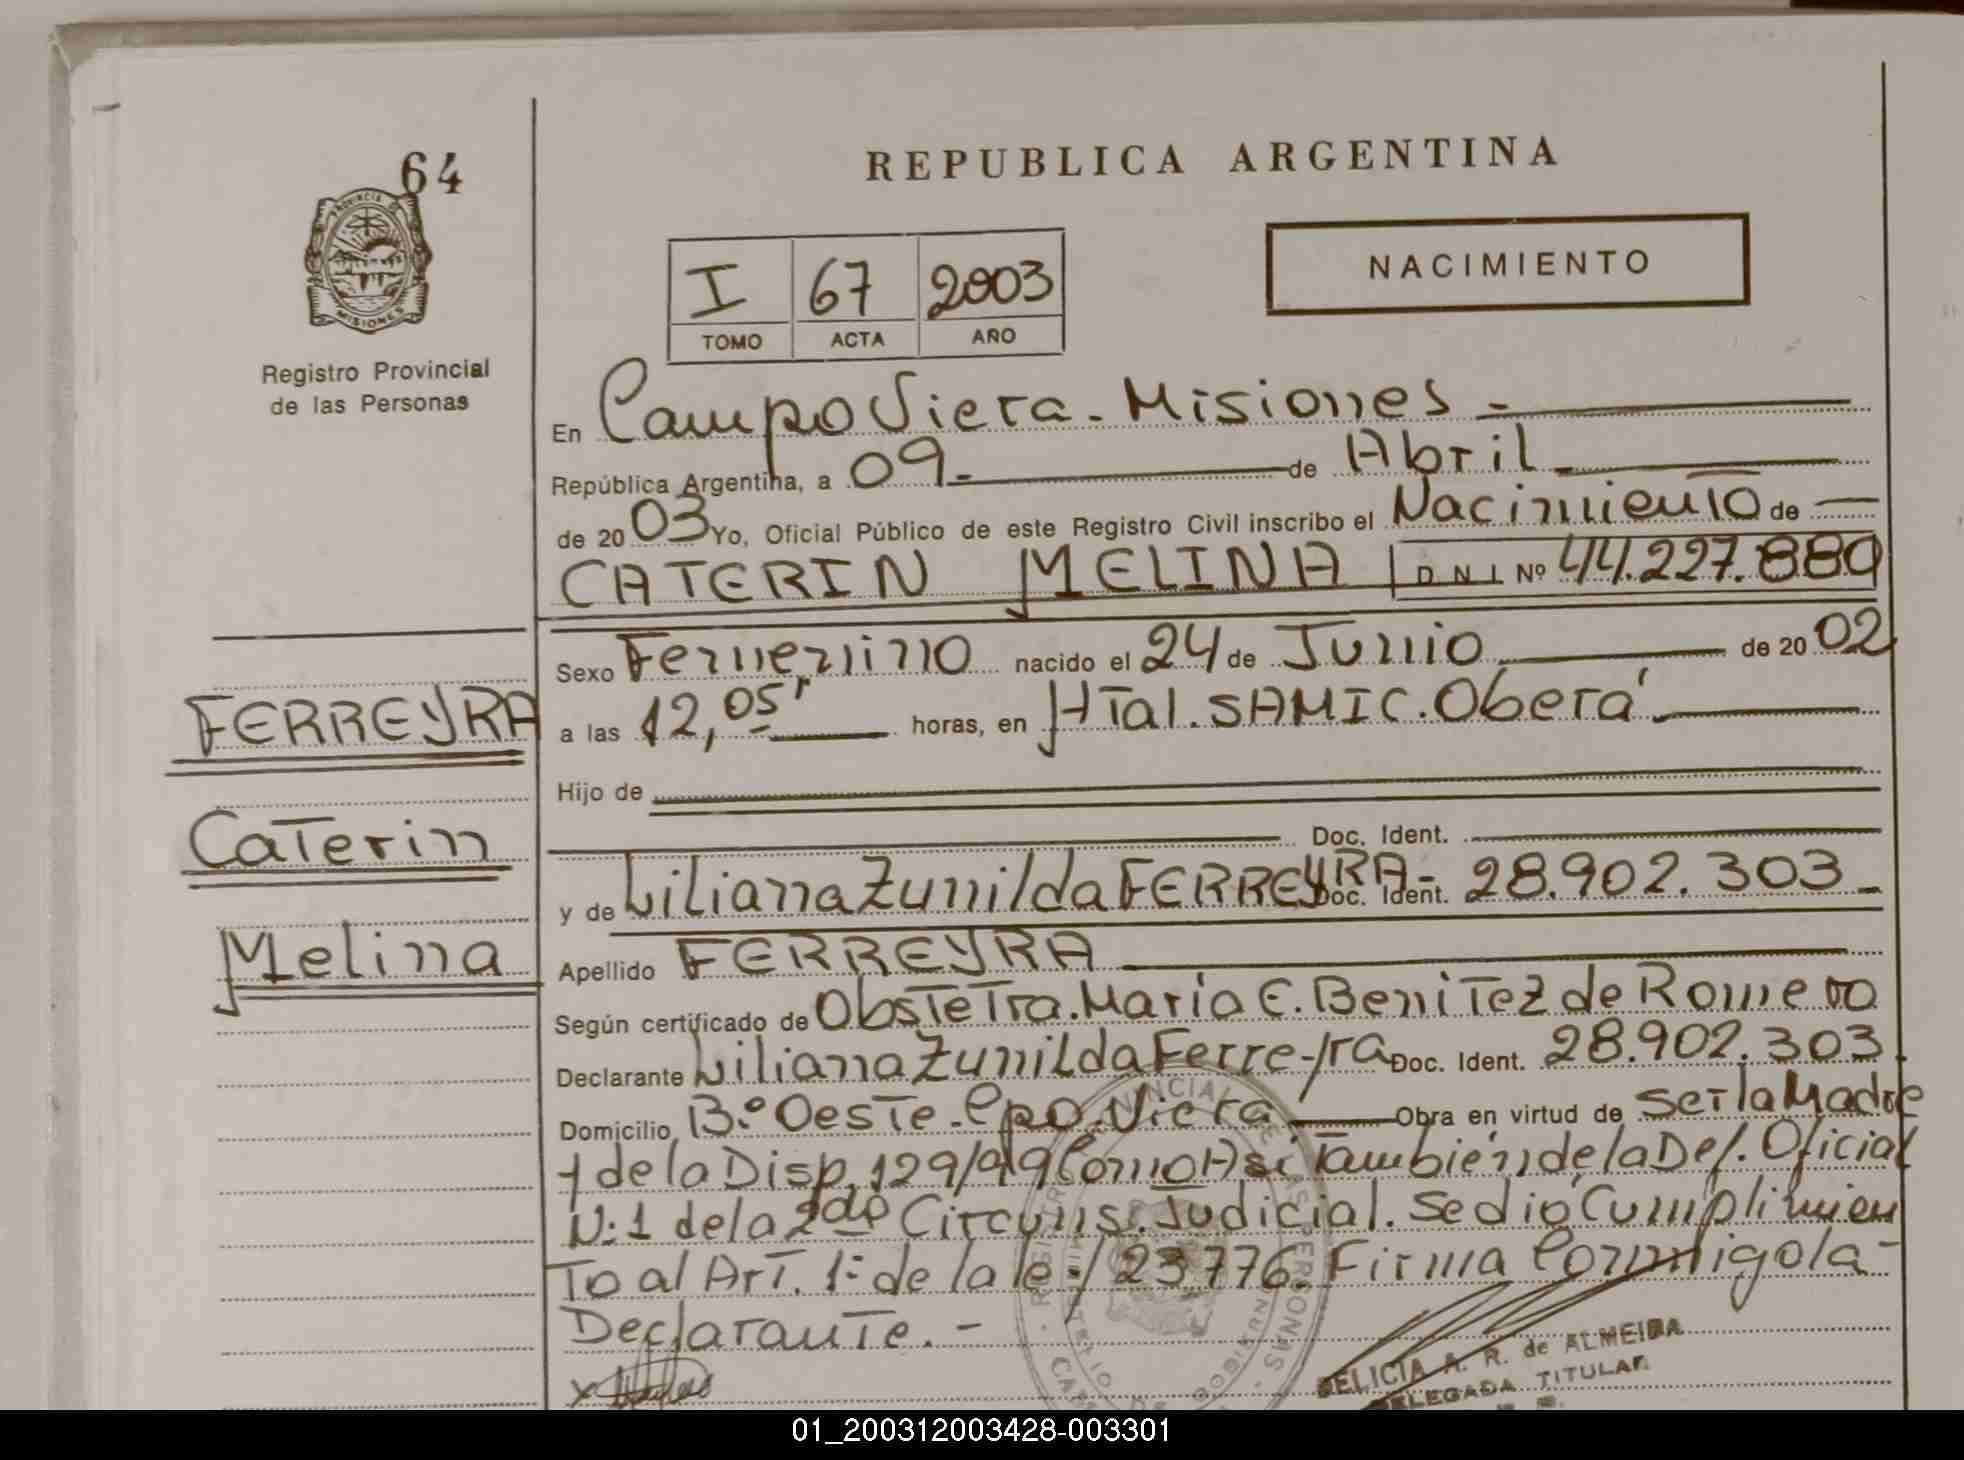 64
PROVINCIA DE
MISIONES
Registro Provincial
de las Personas
REPUBLICA ARGENTINA
I 67 2003
TOMO ACTA AÑO
NACIMIENTO
En Campo Viera - Misiones -
República Argentina, a 09 - de Abril -
de 2003 Yo, Oficial Público de este Registro Civil inscribo el Nacimiento de
CATERIN MELINA D N I Nº 44.227.880
Sexo Femenino nacido el 24 de Junio de 2002
FERREYRA
a las 12,05' horas, en HTal. SAMIC. Oberá
Hijo de
Doc. Ident.
Caterin
y de Liliana Zunilda FERREYRA - Doc. Ident. 28.902.303 -
Melina
Apellido FERREYRA
Según certificado de ObsTeTra. María E. BeniTez de Romero
Declarante Liliana Zunilda Ferreyra Doc. Ident. 28.902.303.
Domicilio Bº OesTe - Cpo. Viera Obra en virtud de ser la Madre
y de la Disp. 129/99 Como Asi También de la Def. Oficial
N:1 de la 2da Circuns. Judicial. Se dió Cumplimien
To al ArT. 1: de la ley 23776. Firma Conmigo la
DeclaranTe. -
FELICIA A. R. de ALMEIDA
DELEGADA TITULAR
01_200312003428-003301